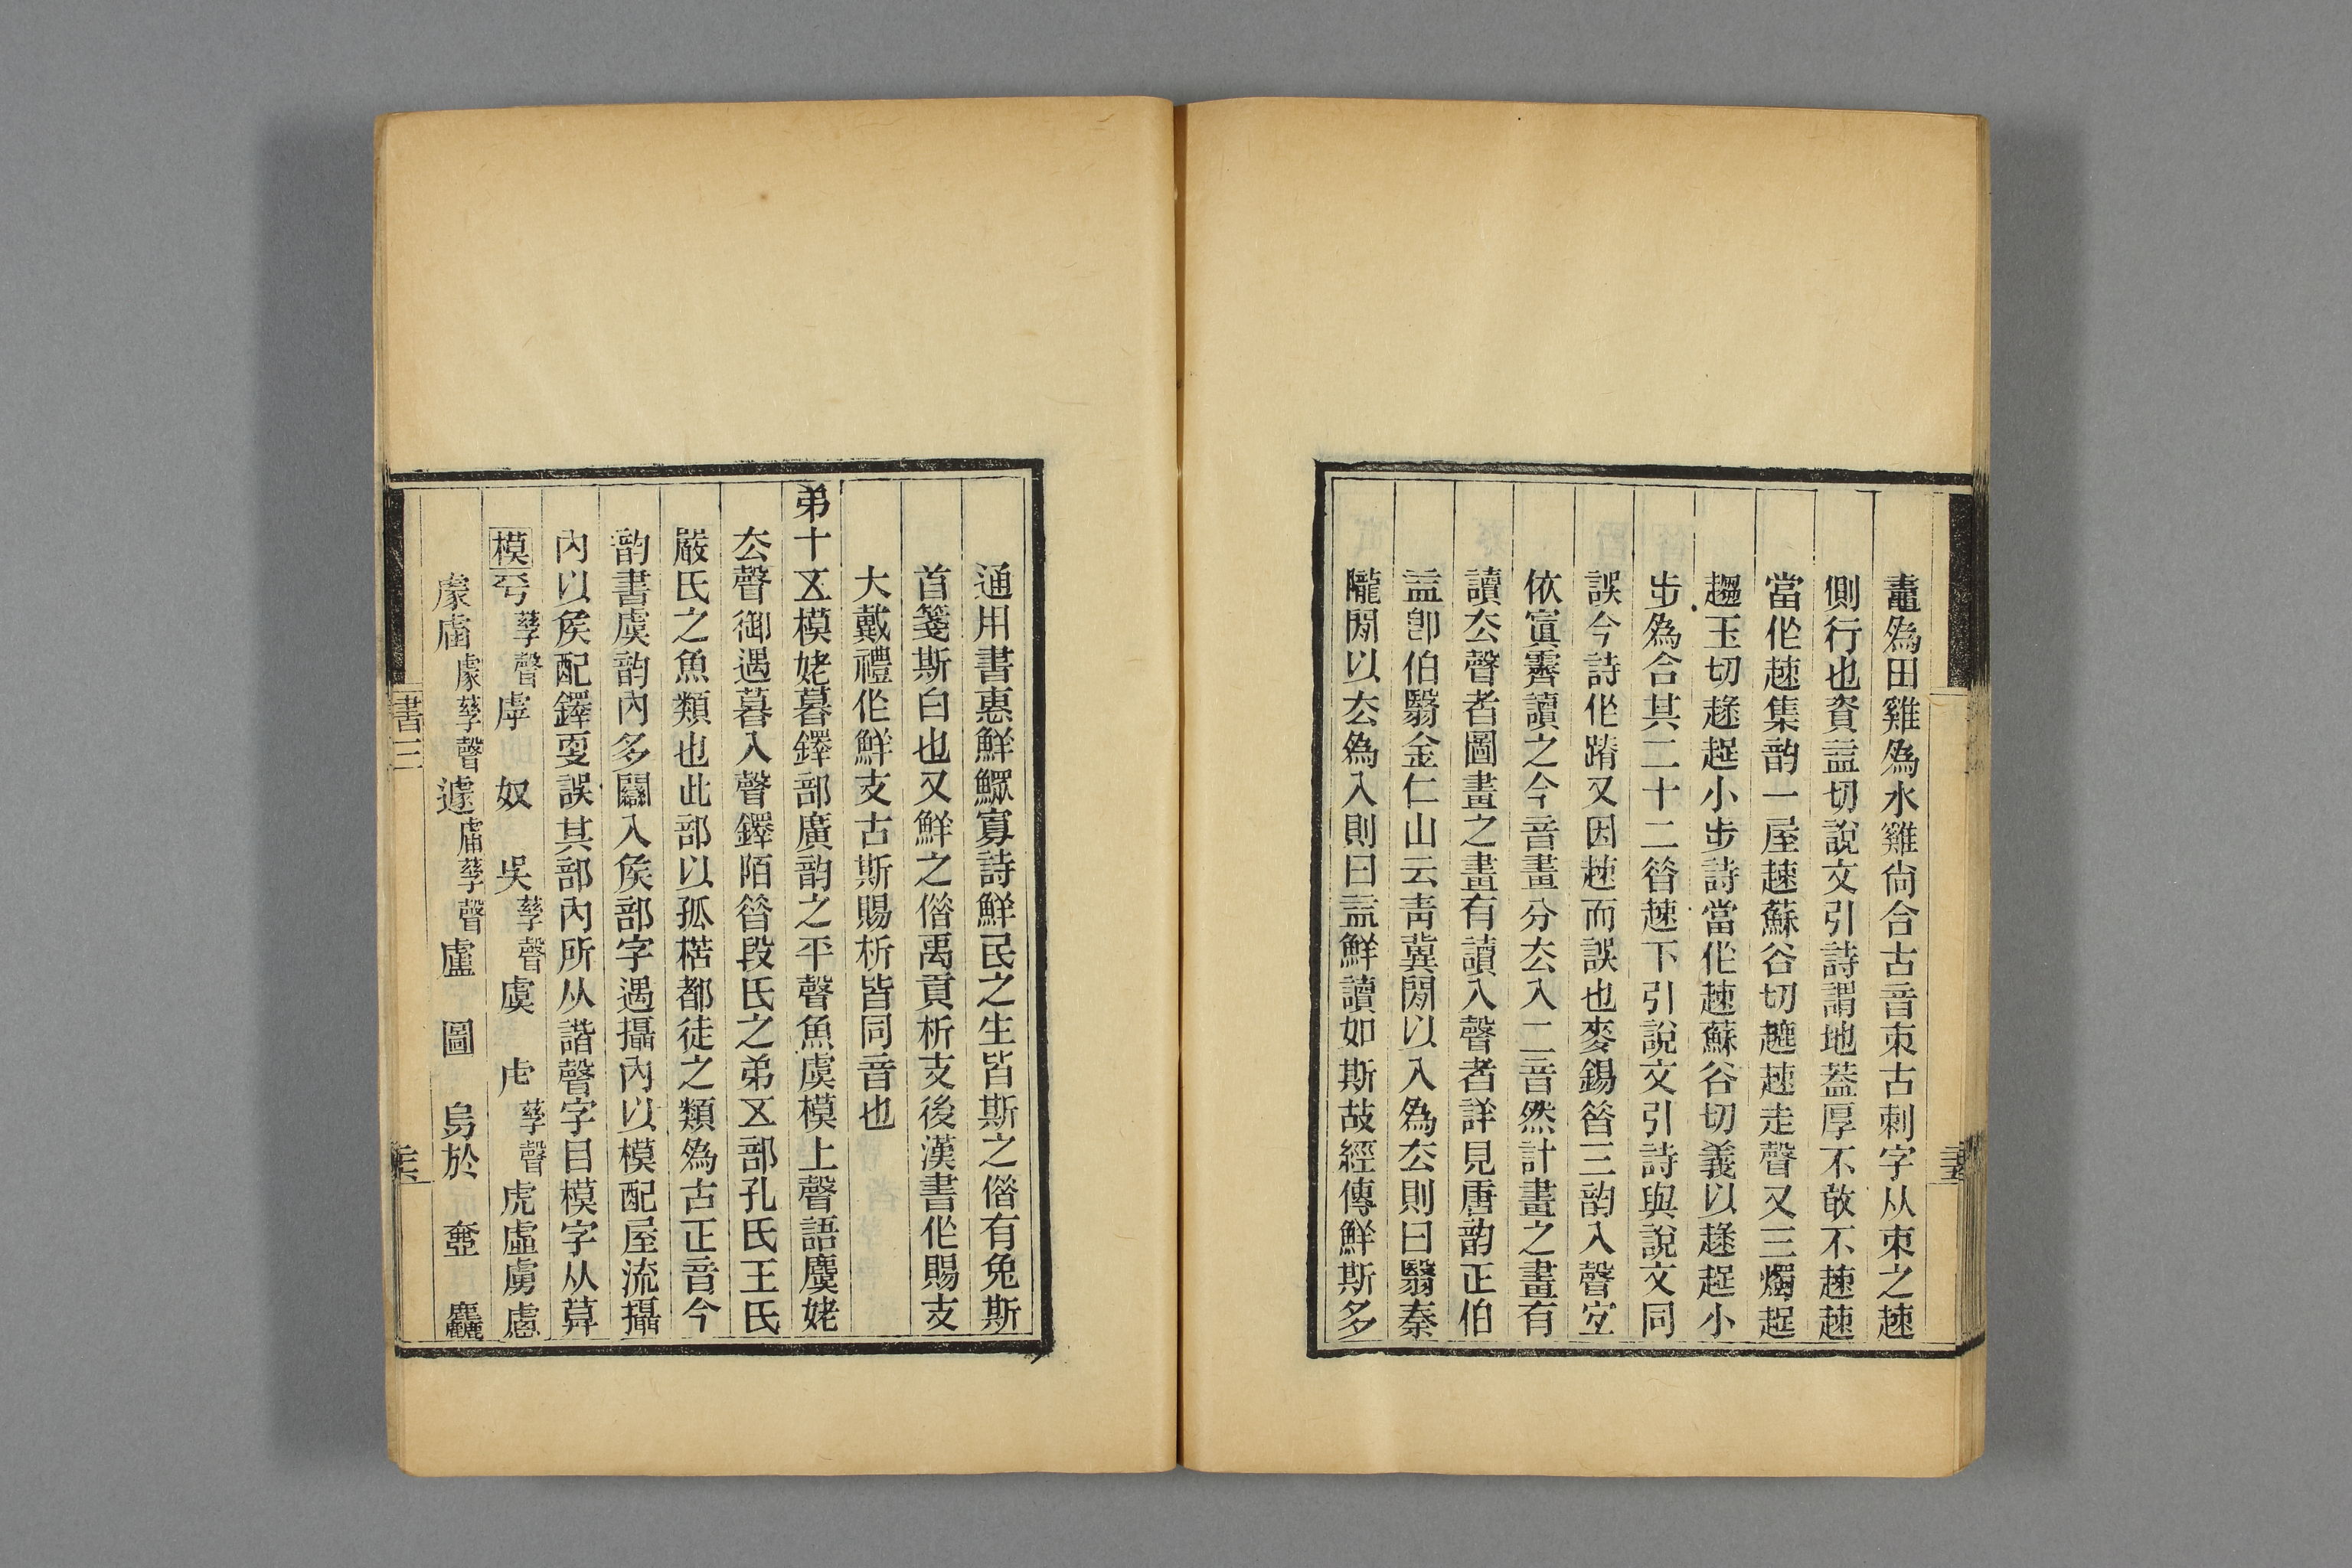 鼃為田雞為水雞尙合古音朿古刺字从朿之䟿
側行也資㿽切說文引詩謂地葢厚不敢不䟿䟿
當作䟿集韵一屋䟿蘇谷切䟿走聲又三燭起
趨玉切趢起小步詩當作䟿蘇谷切義以趢起小
步為合其二十二昝䟿下引說文引詩與說文同
誤今詩作蹐又因䟿而誤也麥錫昝三韵入聲宐
依寘霽讀之今音畫分厺入二音然計畫之畫有
讀厺聲者圖畫之畫有讀入聲者詳見唐韵正伯
益卽伯翳金仁山云靑冀閒以入為厺則曰翳秦
隴閒以厺為入則曰益鮮讀如斯故經傳鮮斯多
通用書惠鮮鰥寡詩鮮民之生皆斯之偺有兔斯
首箋斯白也又鮮之偺禹貢析支後漢書作賜支
大戴禮作鮮支古斯賜析皆同音也
弟十㐅模姥暮鐸部廣韵之平聲魚虞模上聲語麌姥
厺聲御遇暮入聲鐸陌昝段氏之弟㐅部孔氏王氏
嚴氏之魚類也此部以孤楛都徒之類為古正音今
韵書虞韵內多闌入矦部字遇攝內以模配屋流攝
內以矦配鐸叓誤其部內所从諧聲字目模字从莫
模 兮孳聲 虖 奴 吳孳聲 虞 虍孳聲 虎虛虜慮
豦虘豦孳聲 遽虘孳聲 盧 圖 烏於 壺 麤
書三